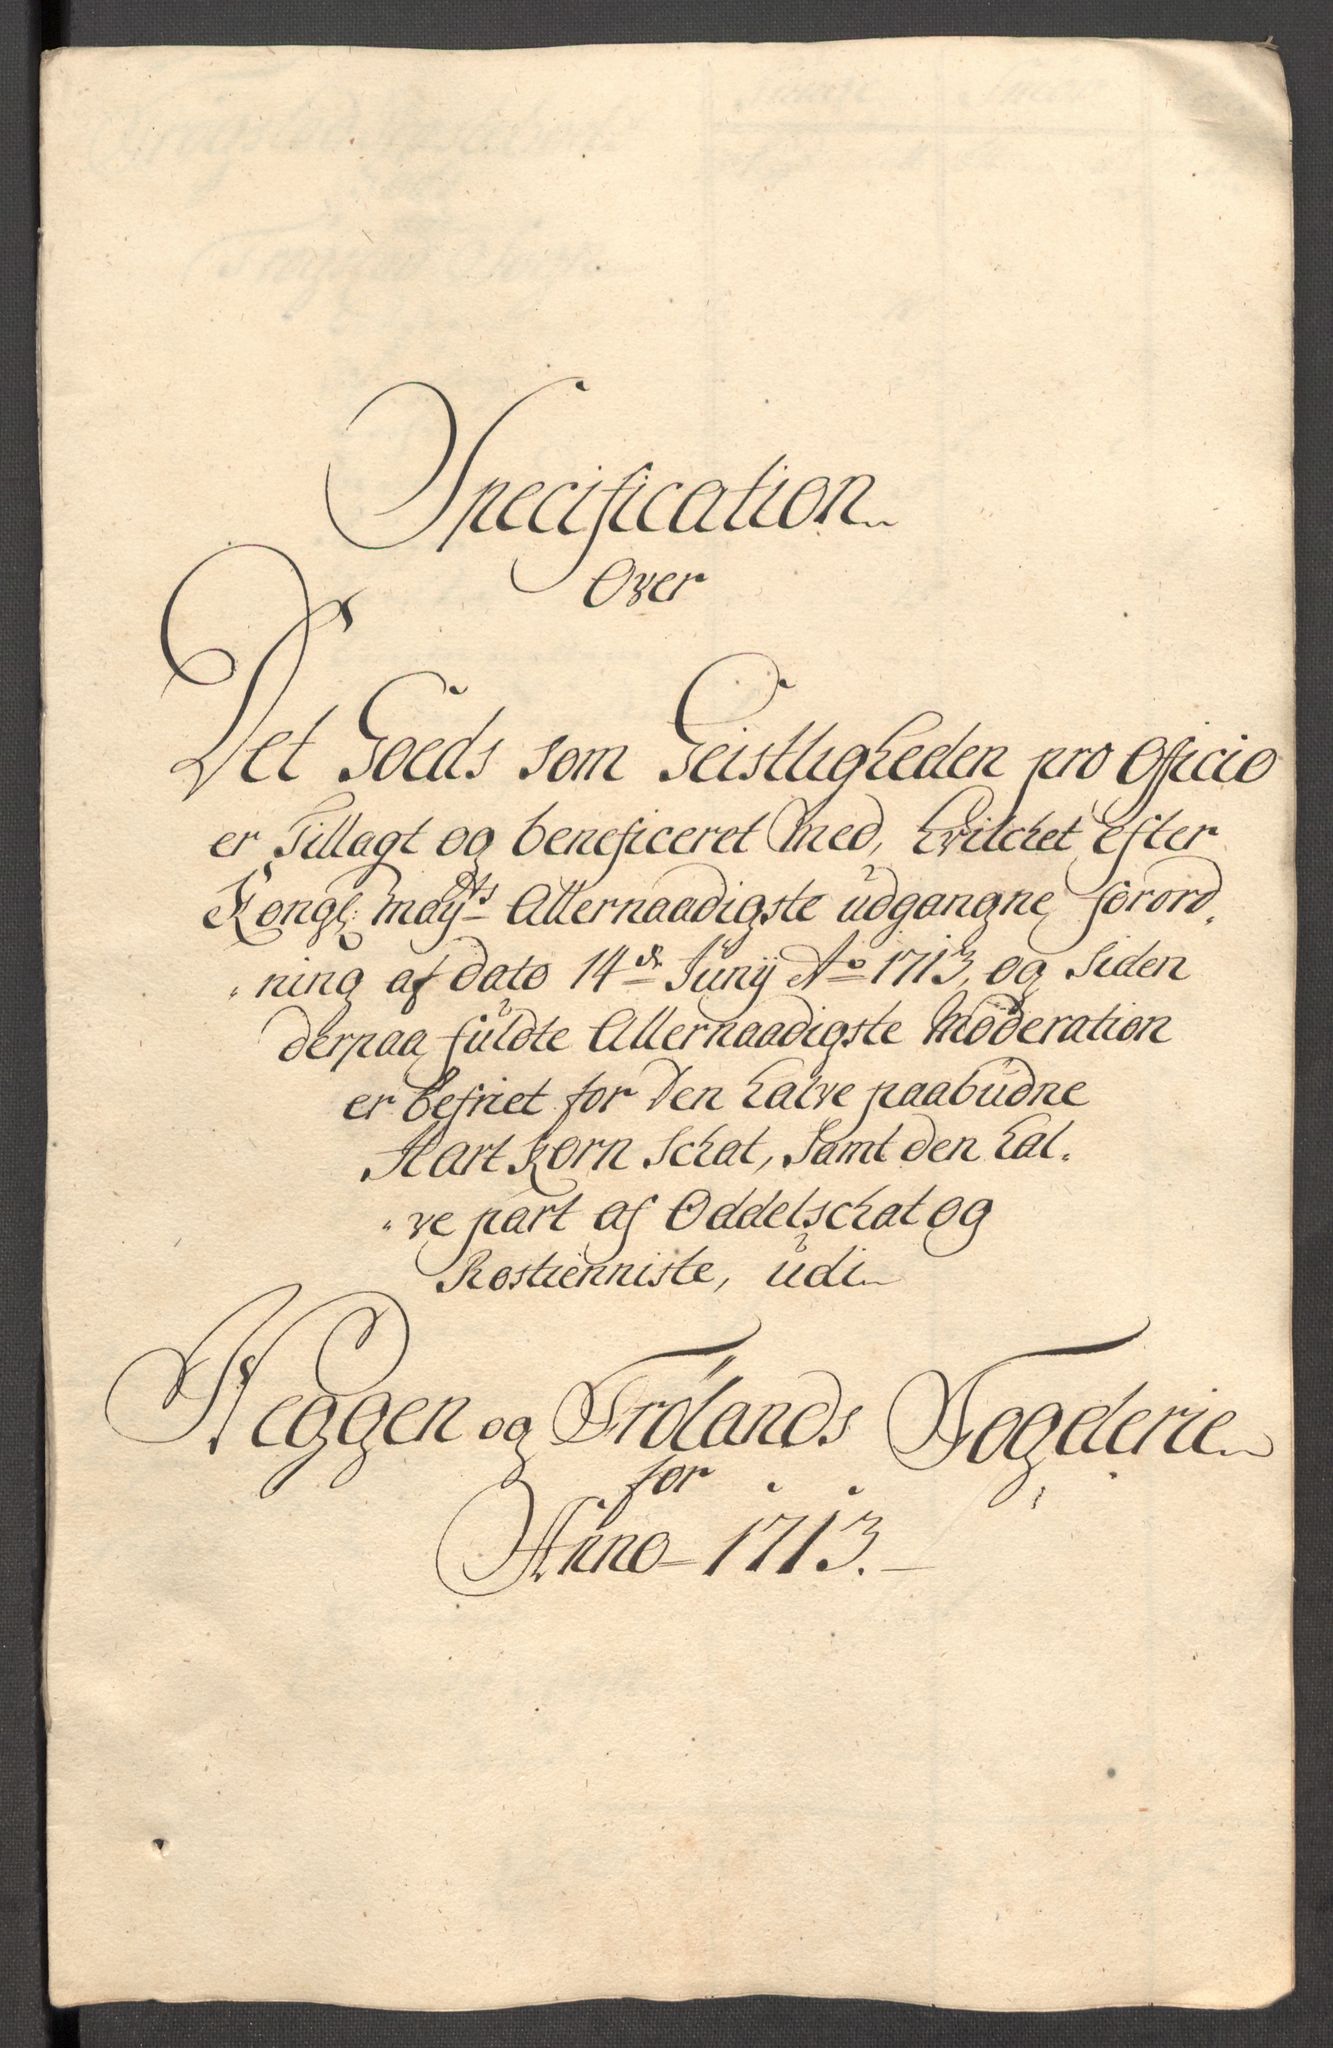 Specification
Over
Det Goeds som Geistligheden pro Officio
er Tillagt og beneficeret Med, hvilchet efter
Kongl: Mayts Allernaadigste udgangne forord,
ning af dato 14de Junij Ao 1713, og Siden
derpaa fuldte Allernaadigste Moderation
er befriet for Den halve paabudne
Hart Korn Schat, Samt den hal,
ve part af Oddelschat og
Rostienniste, udi
Heggen og Frølands Fogderie
for
Anno 1713.